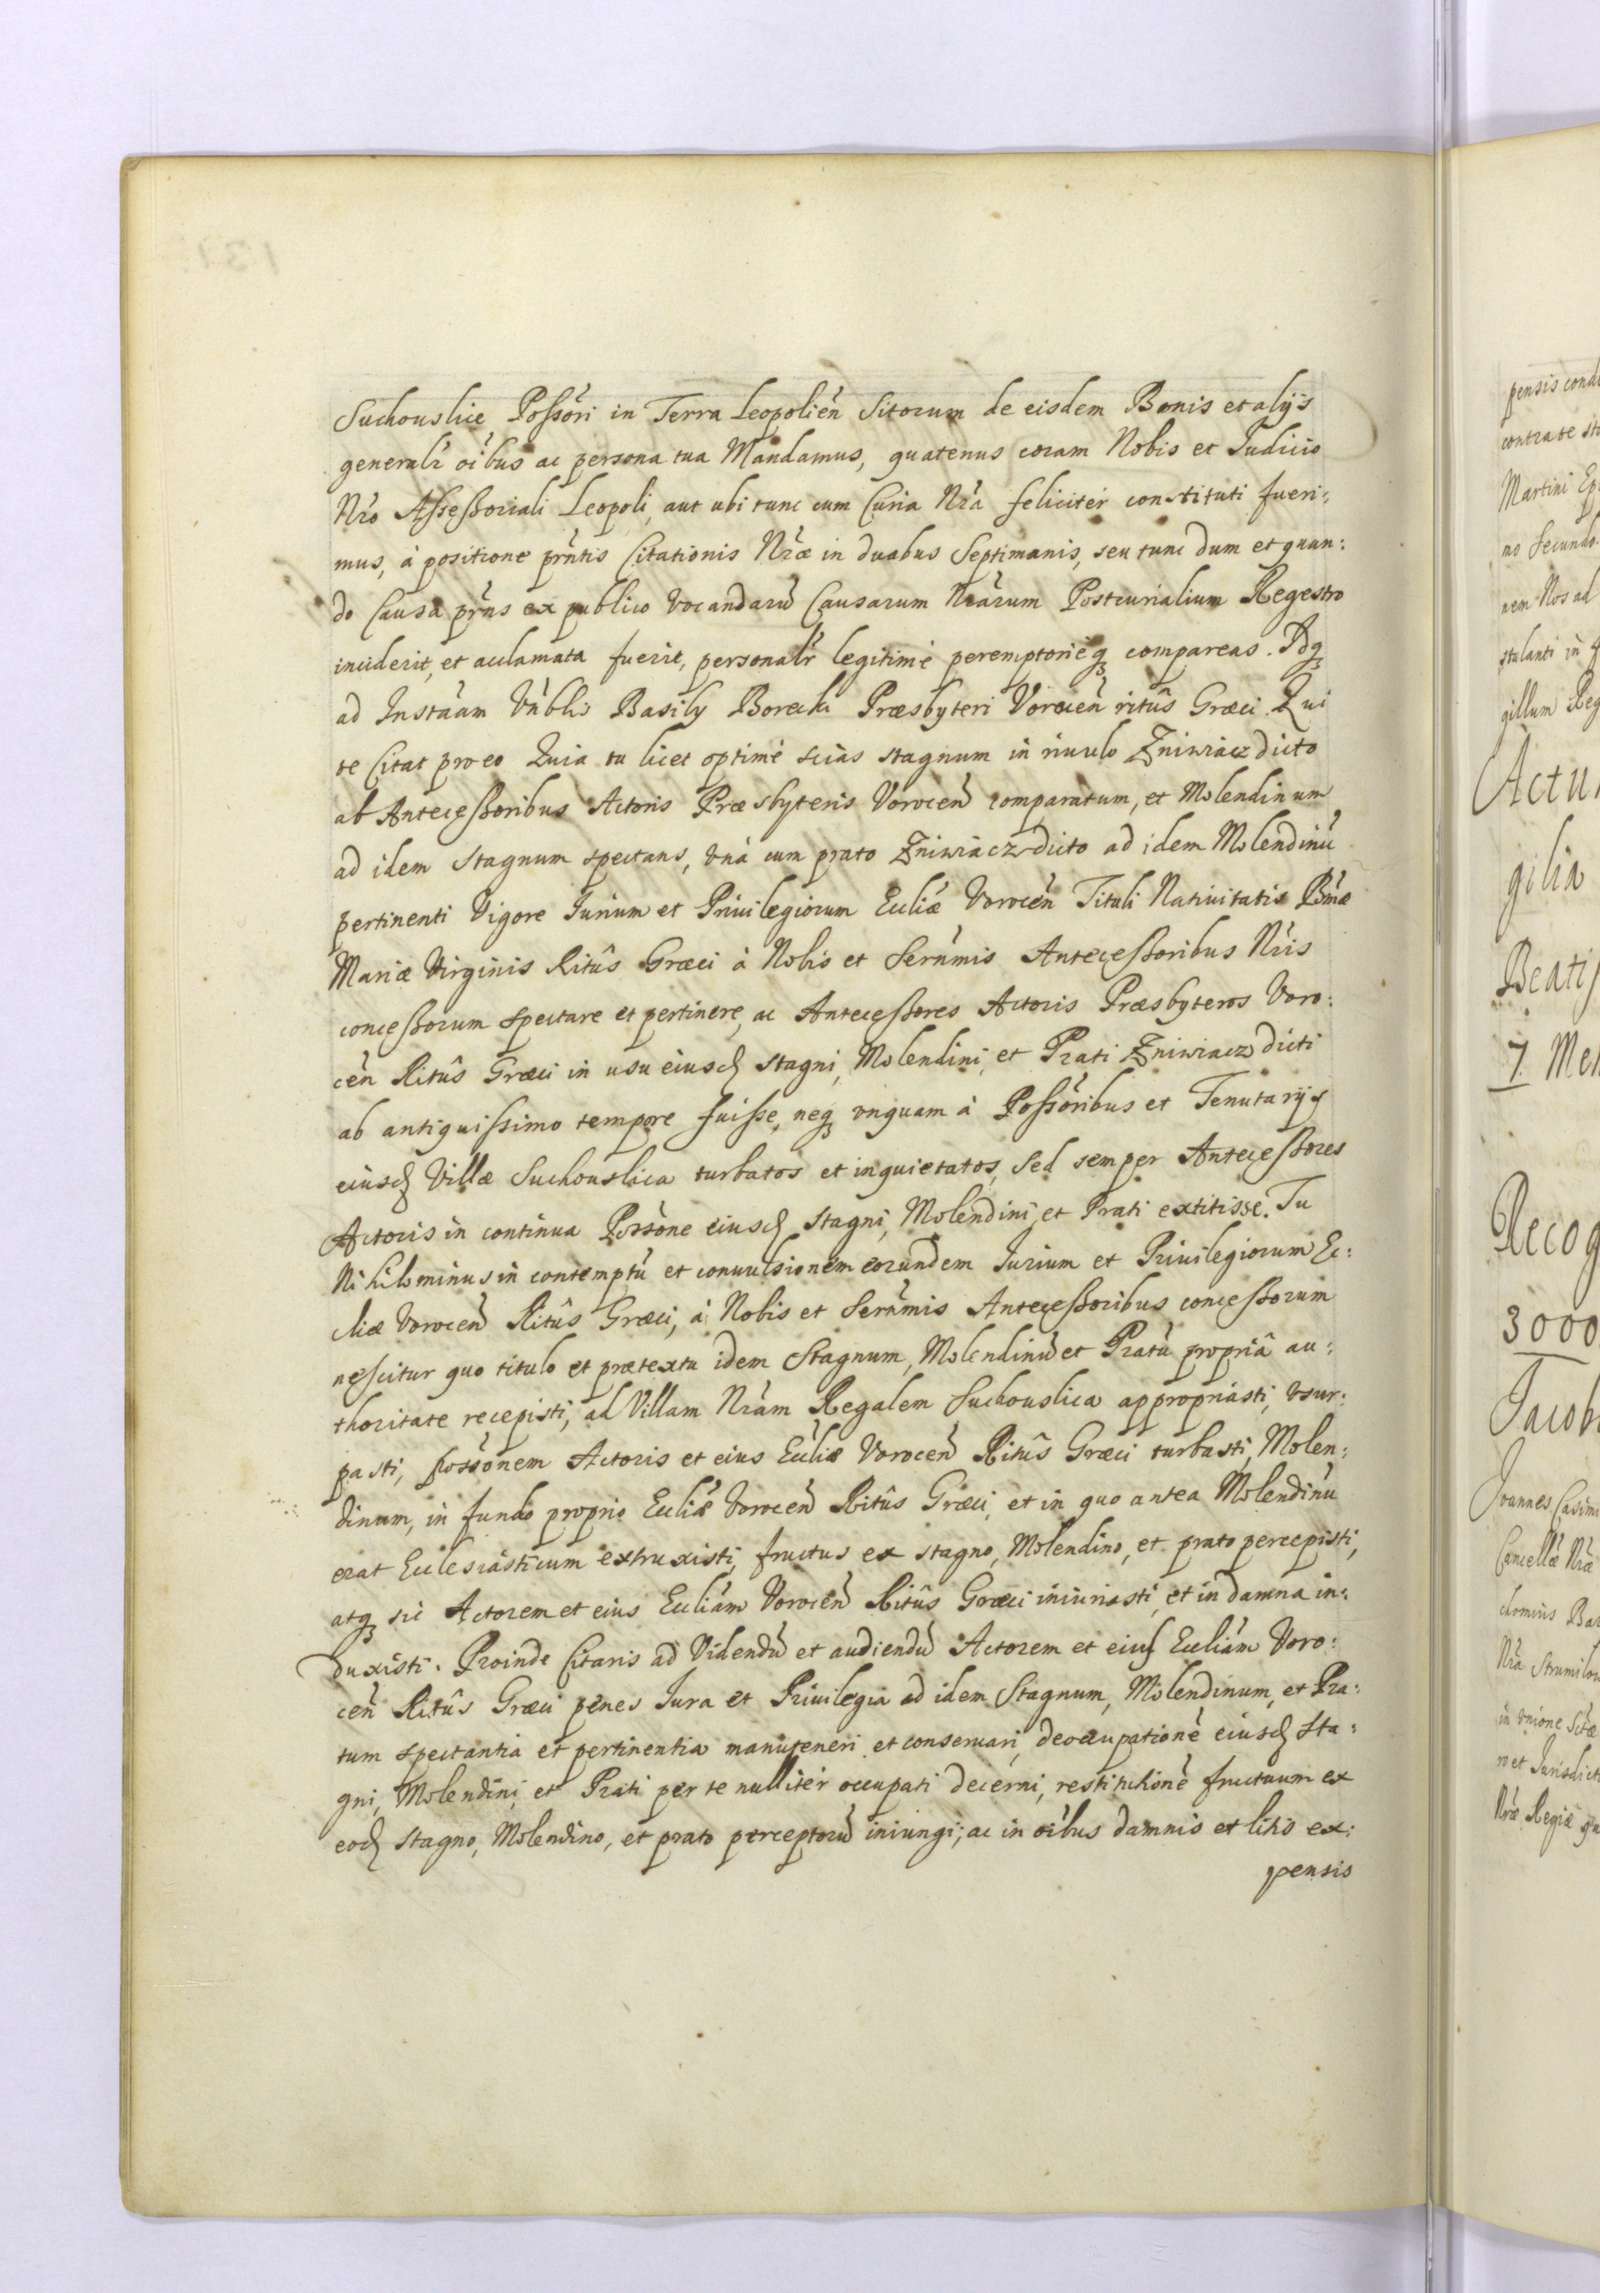 Suchouslice Possori in Terra Leopolien̄ Sitorum de eisdem Bonis et alijs
generalr̄ oībus ac persona tua Mandamus, quatenus coram Nobis et Judicio
Nrō Assessoriali Leopoli, aut ubi tunc cum Curia Nrā feliciter constituti fueri:
mus, à positione prn̄tis Citationis Nrǣ in duabus Septimanis, seu tunc dum et quan:
do Causa prn̄s ex publico vocandarū Causarum Nrārum Postcurialium Regestro
inciderit, et acclamata fuerit, personalr̄ legitimè peremptorieq compareas. Idq
ad Instāam Vn̄blis Basilÿ Borecki Præsbyteri Vorocen̄ ritûs Græci. Qui
te Citat pro eo Quia tu licet optimè scias stagnum in riuulo Zniwiacz dicto
ab Antecessoribus Actoris Præsbyteris Vorocen̄ comparatum, et Molendinum
ad idem Stagnum spectans, vnà cum prato Zniwiacz dicto ad idem Molendinū
pertinenti Vigore Jurium et Priuilegiorum Eccliǣ Vorocen̄ Tituli Natiuitatis Bm̄æ
Mariæ Virginis Ritûs Græci à Nobis et Sern̄mis Antecessoribus Nrīs
concessorum spectare et pertinere, ac Antecessores Actoris Præsbyteros Voro:
cen̄ Ritûs Græci in usu eiusd stagni, Molendini, et Prati Zniwiacz dicti
ab antiquissimo tempore fuisse, neq vnquam à Possoribus et Tenutarijs
eiusd Villæ Suchouslica turbatos et inquietatos, sed semper Antecessores
Actoris in continua Possōne eiusd stagni, Molendini et Prati extitisse. Tu
Nihilominus in contemptū et conuulsionem eorundem Jurium et Priuilegiorum Ec:
cliæ Vorocen̄ Ritûs Græci, à Nobis et Sern̄mis Antecessoribus concessorum
nescitur quo titulo et prætextu idem Stagnum, Molendinū et Pratū propriâ au:
thoritate recepisti, ad Villam Nrām Regalem Suchouslica appropriasti, vsur:
pasti, possōnem Actoris et eius Eccliæ Vorocen̄ Ritûs Græci turbasti, Molen:
dinum, in fundo proprio Eccliǣ Vorocen̄ Ritûs Græci, et in quo antea Molendinū
erat Ecclesiasticum extruxisti, fructus ex stagno, Molendino, et prato percepisti,
atq sic Actorem et eius Eccliām Vorocen̄ Ritûs Græci iniuriasti, et in damna in:
duxisti. Proinde Citaris ad Videndū et audiendū Actorem et eius Eccliām Voro:
cen̄ Ritûs Græci penes Jura et Priuilegia ad idem Stagnum, Molendinum, et Pra:
tum spectantia et pertinentia manuteneri et conseruari, deoccupationē eiusd Sta:
gni, Molendini, et Prati per te nulliter occupati decerni, restitutionē fructuum ex
eod stagno, Molendino, et prato perceptorū iniungi; ac in oībus damnis et litis ex:
pensis
pensis
contra te
Martini
no Secundo
nem Nos ad
stulanti in
gillum Reg
Actu
gilia
Beatis
7
Recog
3000
Jacob
Joannes Casim
Nrǣ
in vnione
Nrǣ Regiæ